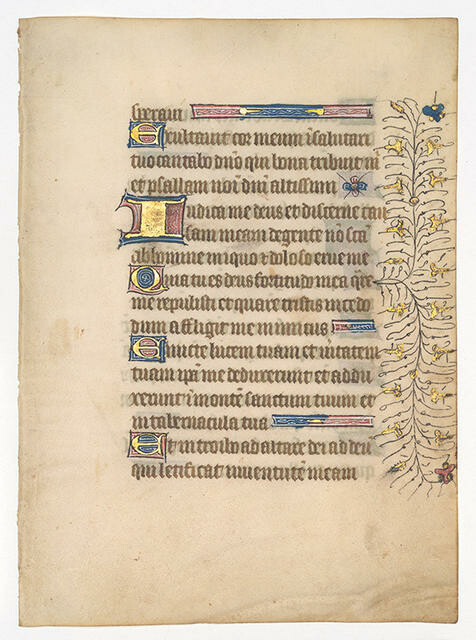 speraui
Exultauit cor meum ī salutari
tuo cantabo dn̄o qui bona tribuit m̄
et psallam noī dn̄i altissimi
Iudica me deus et discerne cau
sam meam de gente nō scā
ab homine iniquo ⁊ doloso erue me
Quia tu es deus fortitudo mea q̄re
me repulisti et quare tristis incedo
dum affligit me inimicus
Emitte lucem tuam et ūitatem
tuam ip̄a me deduxerunt et addu
xerunt ī montē sanctum tuum et
in tabernacula tua
Et introibo ad altare dei ad deū
qui letificat iuuentutē meam